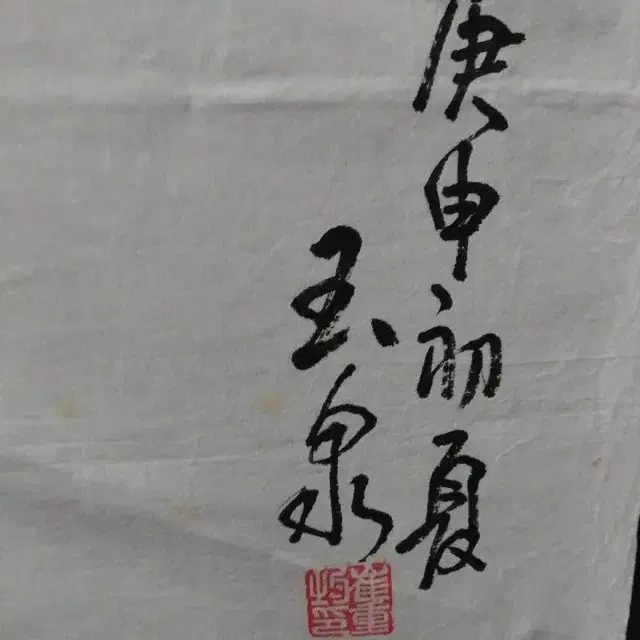 庚申初夏
玉泉